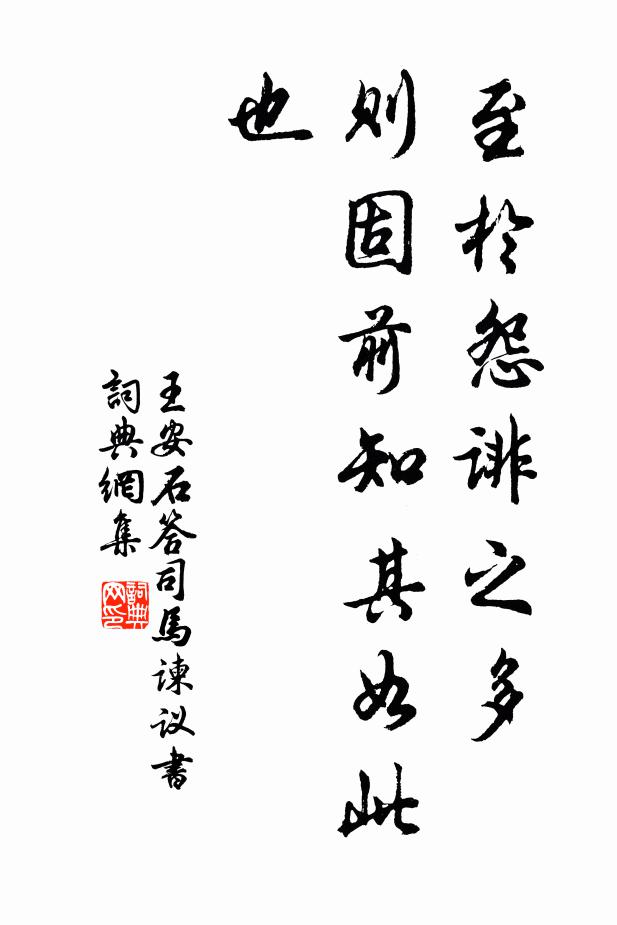 至於怨誹之多
則固前知其如此
也
王安石答司馬諫议書
詞典網集
詞典
网印